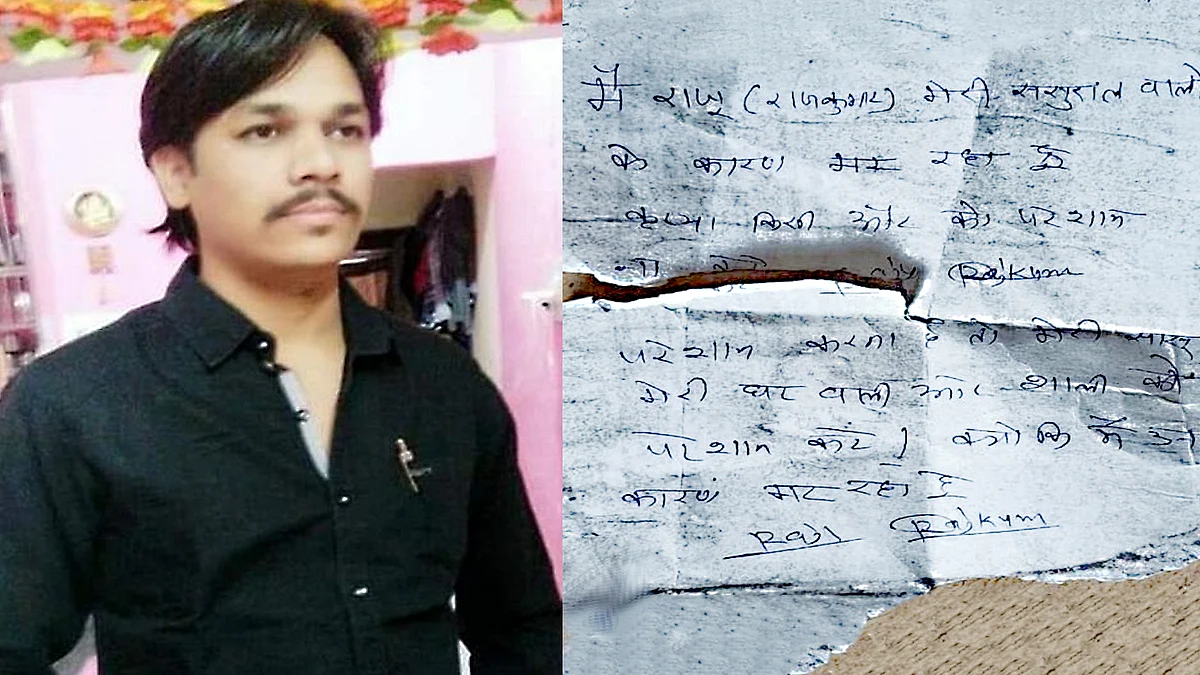 में राजू (राजकुमार) मेरी ससुराल वालो
के कारण मर रहा हूँ
कृप्या किसी और को परेशान
ना करे Rajkum
परेशान करना है तो मेरी सासु
मेरी घर वाली और शाली को
परेशान करें। क्योकि में
कारण मर रहा हूँ
Raju Rajkum